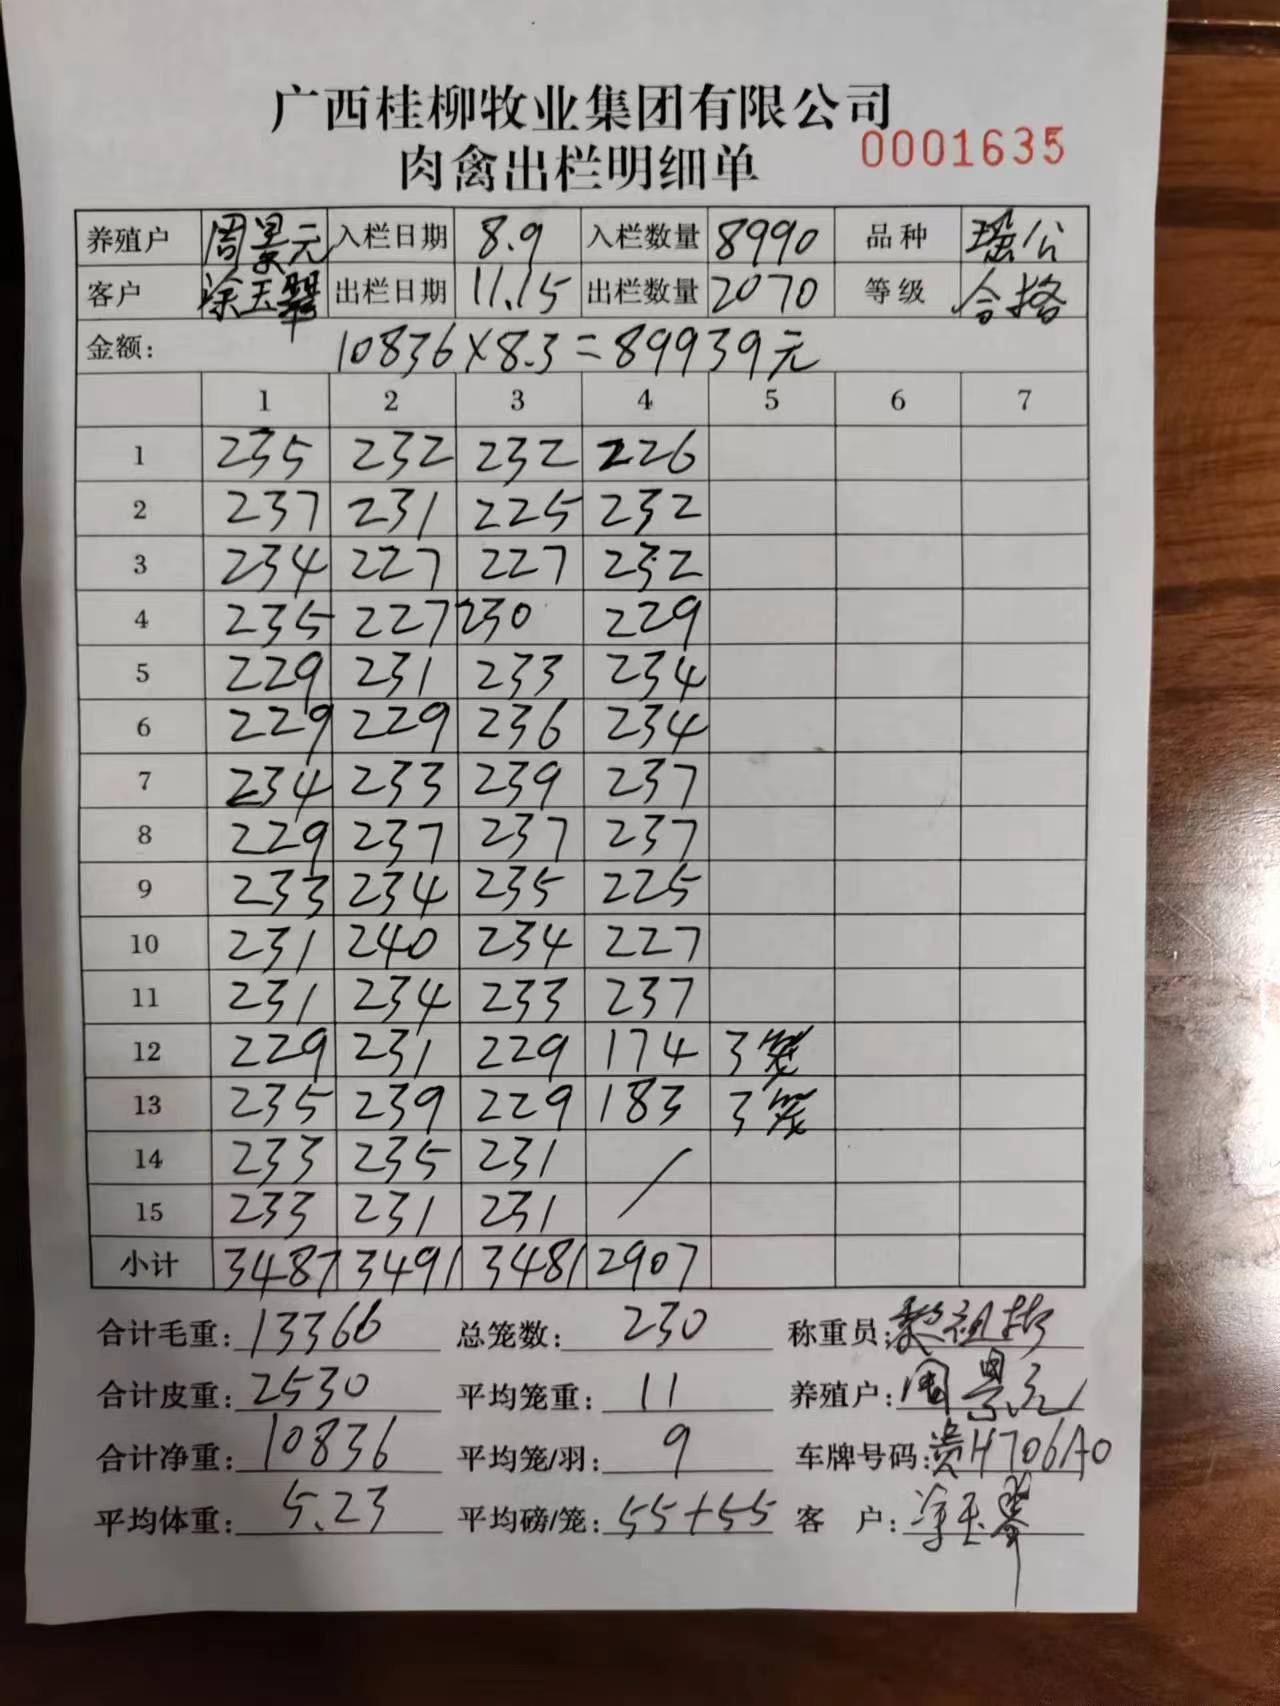 广西桂柳牧业集团有限公司
肉禽出栏明细单 0001635
养殖户 周景元 入栏日期 8.9 入栏数量 8990 品种 瑶公
客户 涂玉翠 出栏日期 11.15 出栏数量 2070 等级 合格
金额: 10836×8.3=89939元
1 2 3 4 5 6 7
1 235 232 232 226
2 237 231 225 232
3 234 227 227 232
4 235 227 230 229
5 229 231 233 234
6 229 229 236 234
7 234 233 239 237
8 229 237 237 237
9 233 234 235 225
10 231 240 234 227
11 231 234 233 237
12 229 231 229 174 3笼
13 235 239 229 183 3笼
14 233 235 231 /
15 233 231 231
小计 3487 3491 3481 2907
合计毛重: 13366 总笼数: 230 称重员:
合计皮重: 2530 平均笼重: 11 养殖户: 周景元
合计净重: 10836 平均笼/羽: 9 车牌号码: 贵H706A0
平均体重: 5.23 平均磅/笼: 55+55 客 户: 涂玉翠